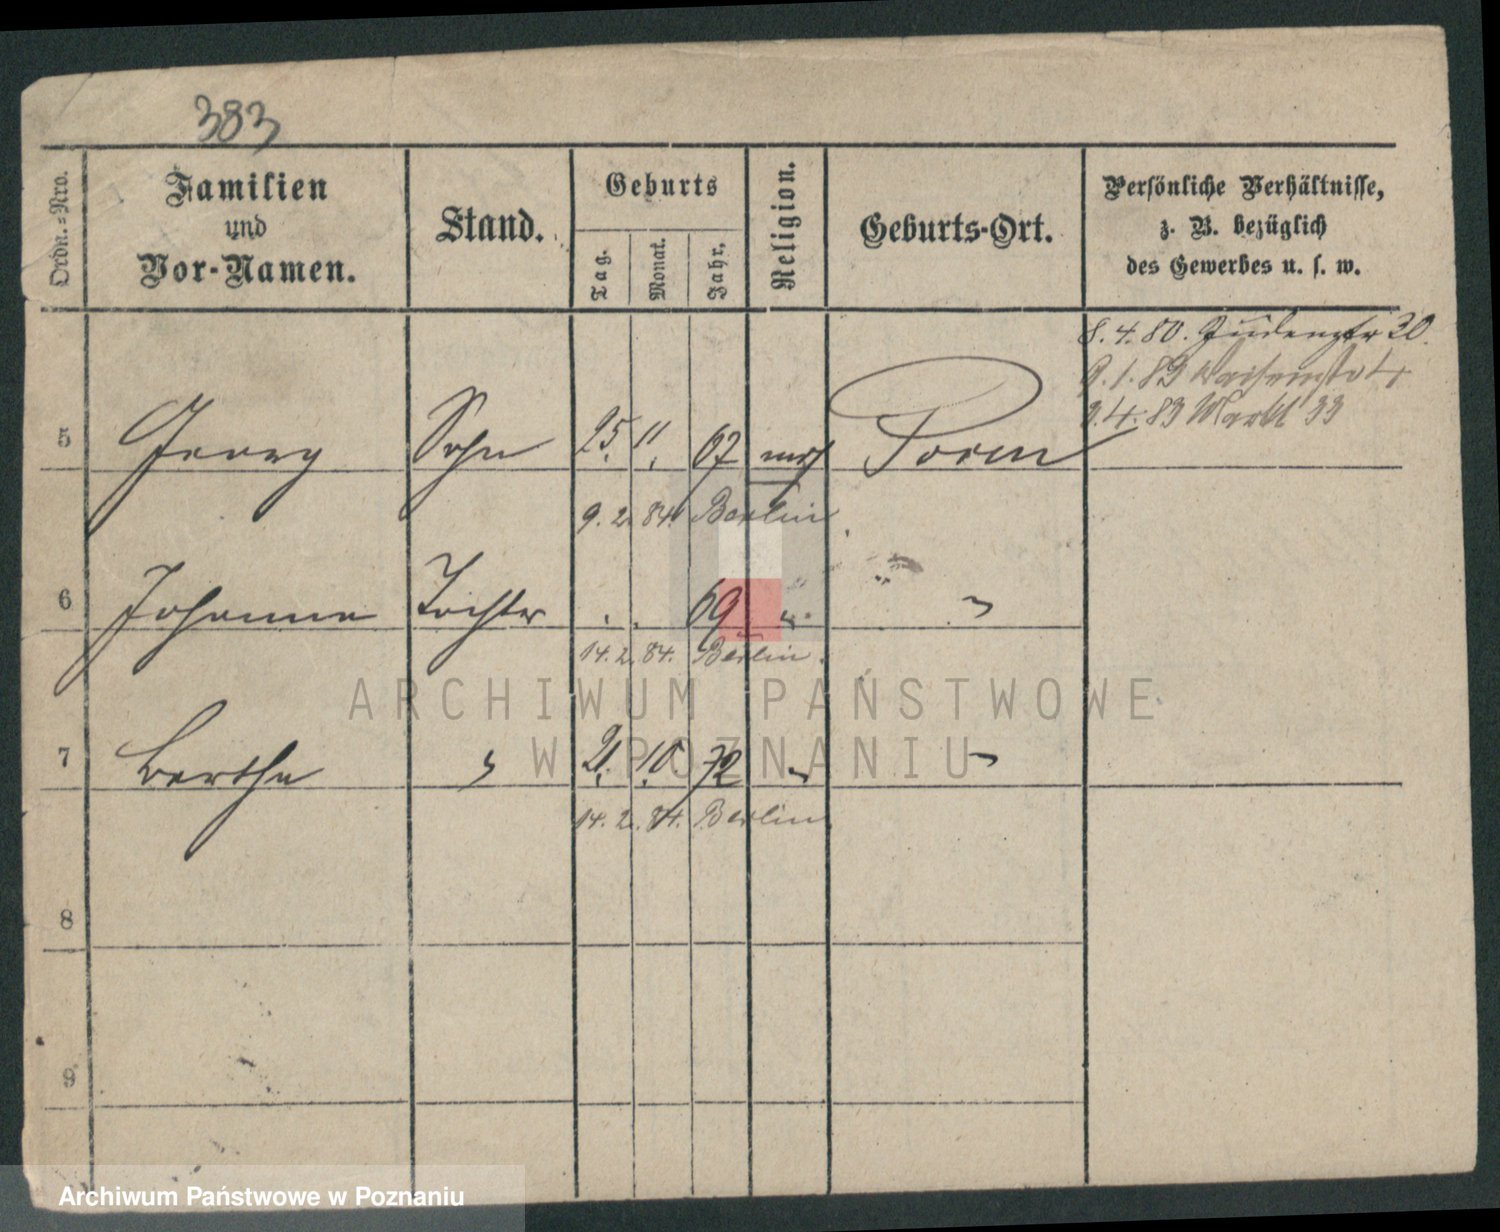 383
Ordn.-Nro.
Familien
und
Vor-Namen.
Stand.
Geburts
Tag.
Monat.
Jahr.
Religion.
Geburts-Ort.
Persönliche Verhältnisse,
z. B. bezüglich
des Gewerbes u. s. w.
8. 4. 80. Judenstr 30.
9. 1. 83
3. 4. 83 Markt 33
5 Georg Sohn 25. 11. 67 mos Posen
9. 2. 84. Berlin.
6 Johanna Tochter . . 69 " "
14. 2. 84. Berlin.
ARCHIWUM PAŃSTWOWE
W POZNANIU
7 Bertha " 21. 10. 72 " "
14. 2. 84. Berlin.
8
9
Archiwum Państwowe w Poznaniu